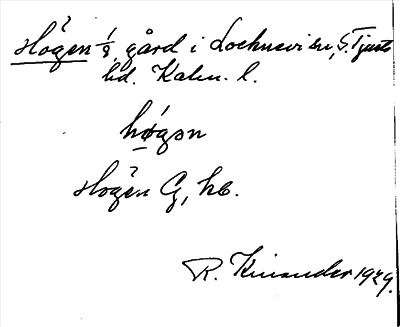 Högen 1/8 gård i Lochnevi sn, S. Tjusts
hd. Kalm. l.
høgən
Högen G, kb.
R. Kinander 1929.